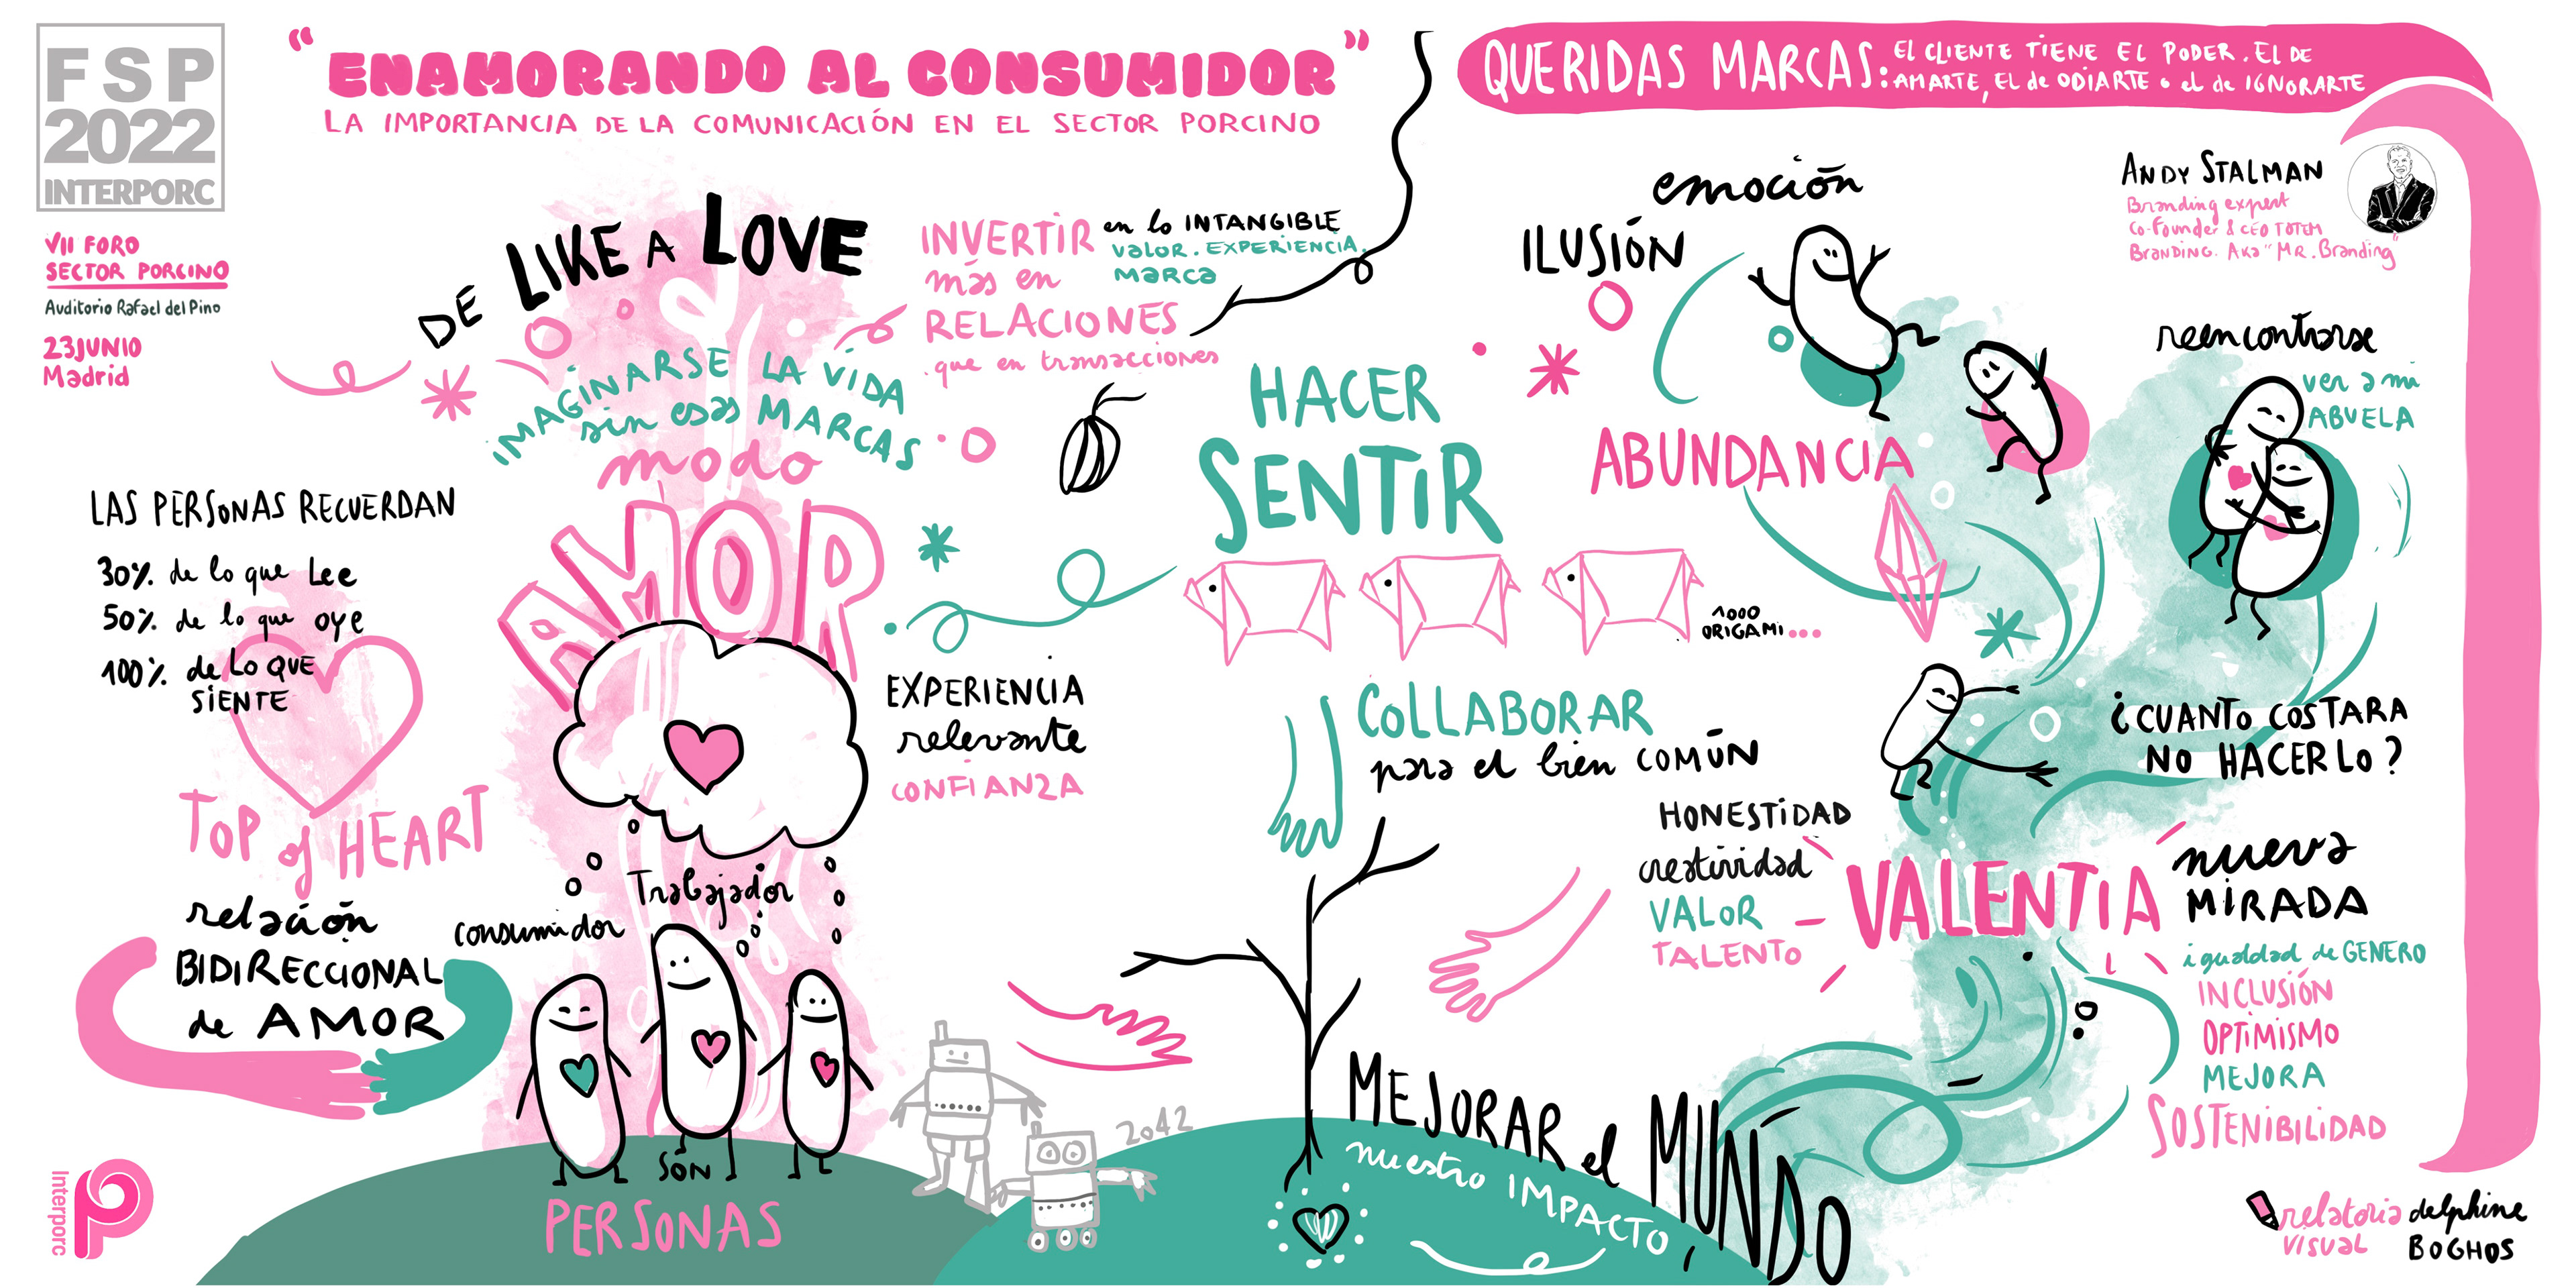 FSP
2022
INTERPORC
VII FORO
SECTOR PORCINO
Auditorio Rafael del Pino
23 JUNIO
Madrid
"ENAMORANDO AL CONSUMIDOR"
LA IMPORTANCIA DE LA COMUNICACIÓN EN EL SECTOR PORCINO
QUERIDAS MARCAS:
EL CLIENTE TIENE EL PODER. EL DE
AMARTE, EL de ODIARTE o el de IGNORARTE
ANDY STALMAN
Branding expert
Co-Founder & CEO TOTEM
BRANDING. AKA "MR. Branding"
DE LIKE A LOVE
IMAGINARSE LA VIDA
sin esas MARCAS
modo
AMOR
INVERTIR
más en
RELACIONES
que en transacciones
en lo INTANGIBLE
VALOR. EXPERIENCIA.
MARCA
LAS PERSONAS RECUERDAN
30% de lo que Lee
50% de lo que oye
100% de Lo QUE
SIENTE
TOP of HEART
relación
BIDIRECCIONAL
de AMOR
EXPERIENCIA
relevante
CONFIANZA
consumidor
Trabajador
SON
PERSONAS
2042
HACER
SENTIR
1000
ORIGAMI...
COLLABORAR
para el bien COMÚN
MEJORAR el MUNDO
nuestro IMPACTO
emoción
ILUSIÓN
ABUNDANCIA
reencontrarse
ver a mi
ABUELA
¿CUANTO COSTARA
NO HACERLO?
HONESTIDAD
creatividad
VALOR
TALENTO
VALENTIA
nueva
MIRADA
igualdad de GENERO
INCLUSIÓN
OPTIMISMO
MEJORA
SOSTENIBILIDAD
Interporc
relatoria
VISUAL
delphine
BOGHOS